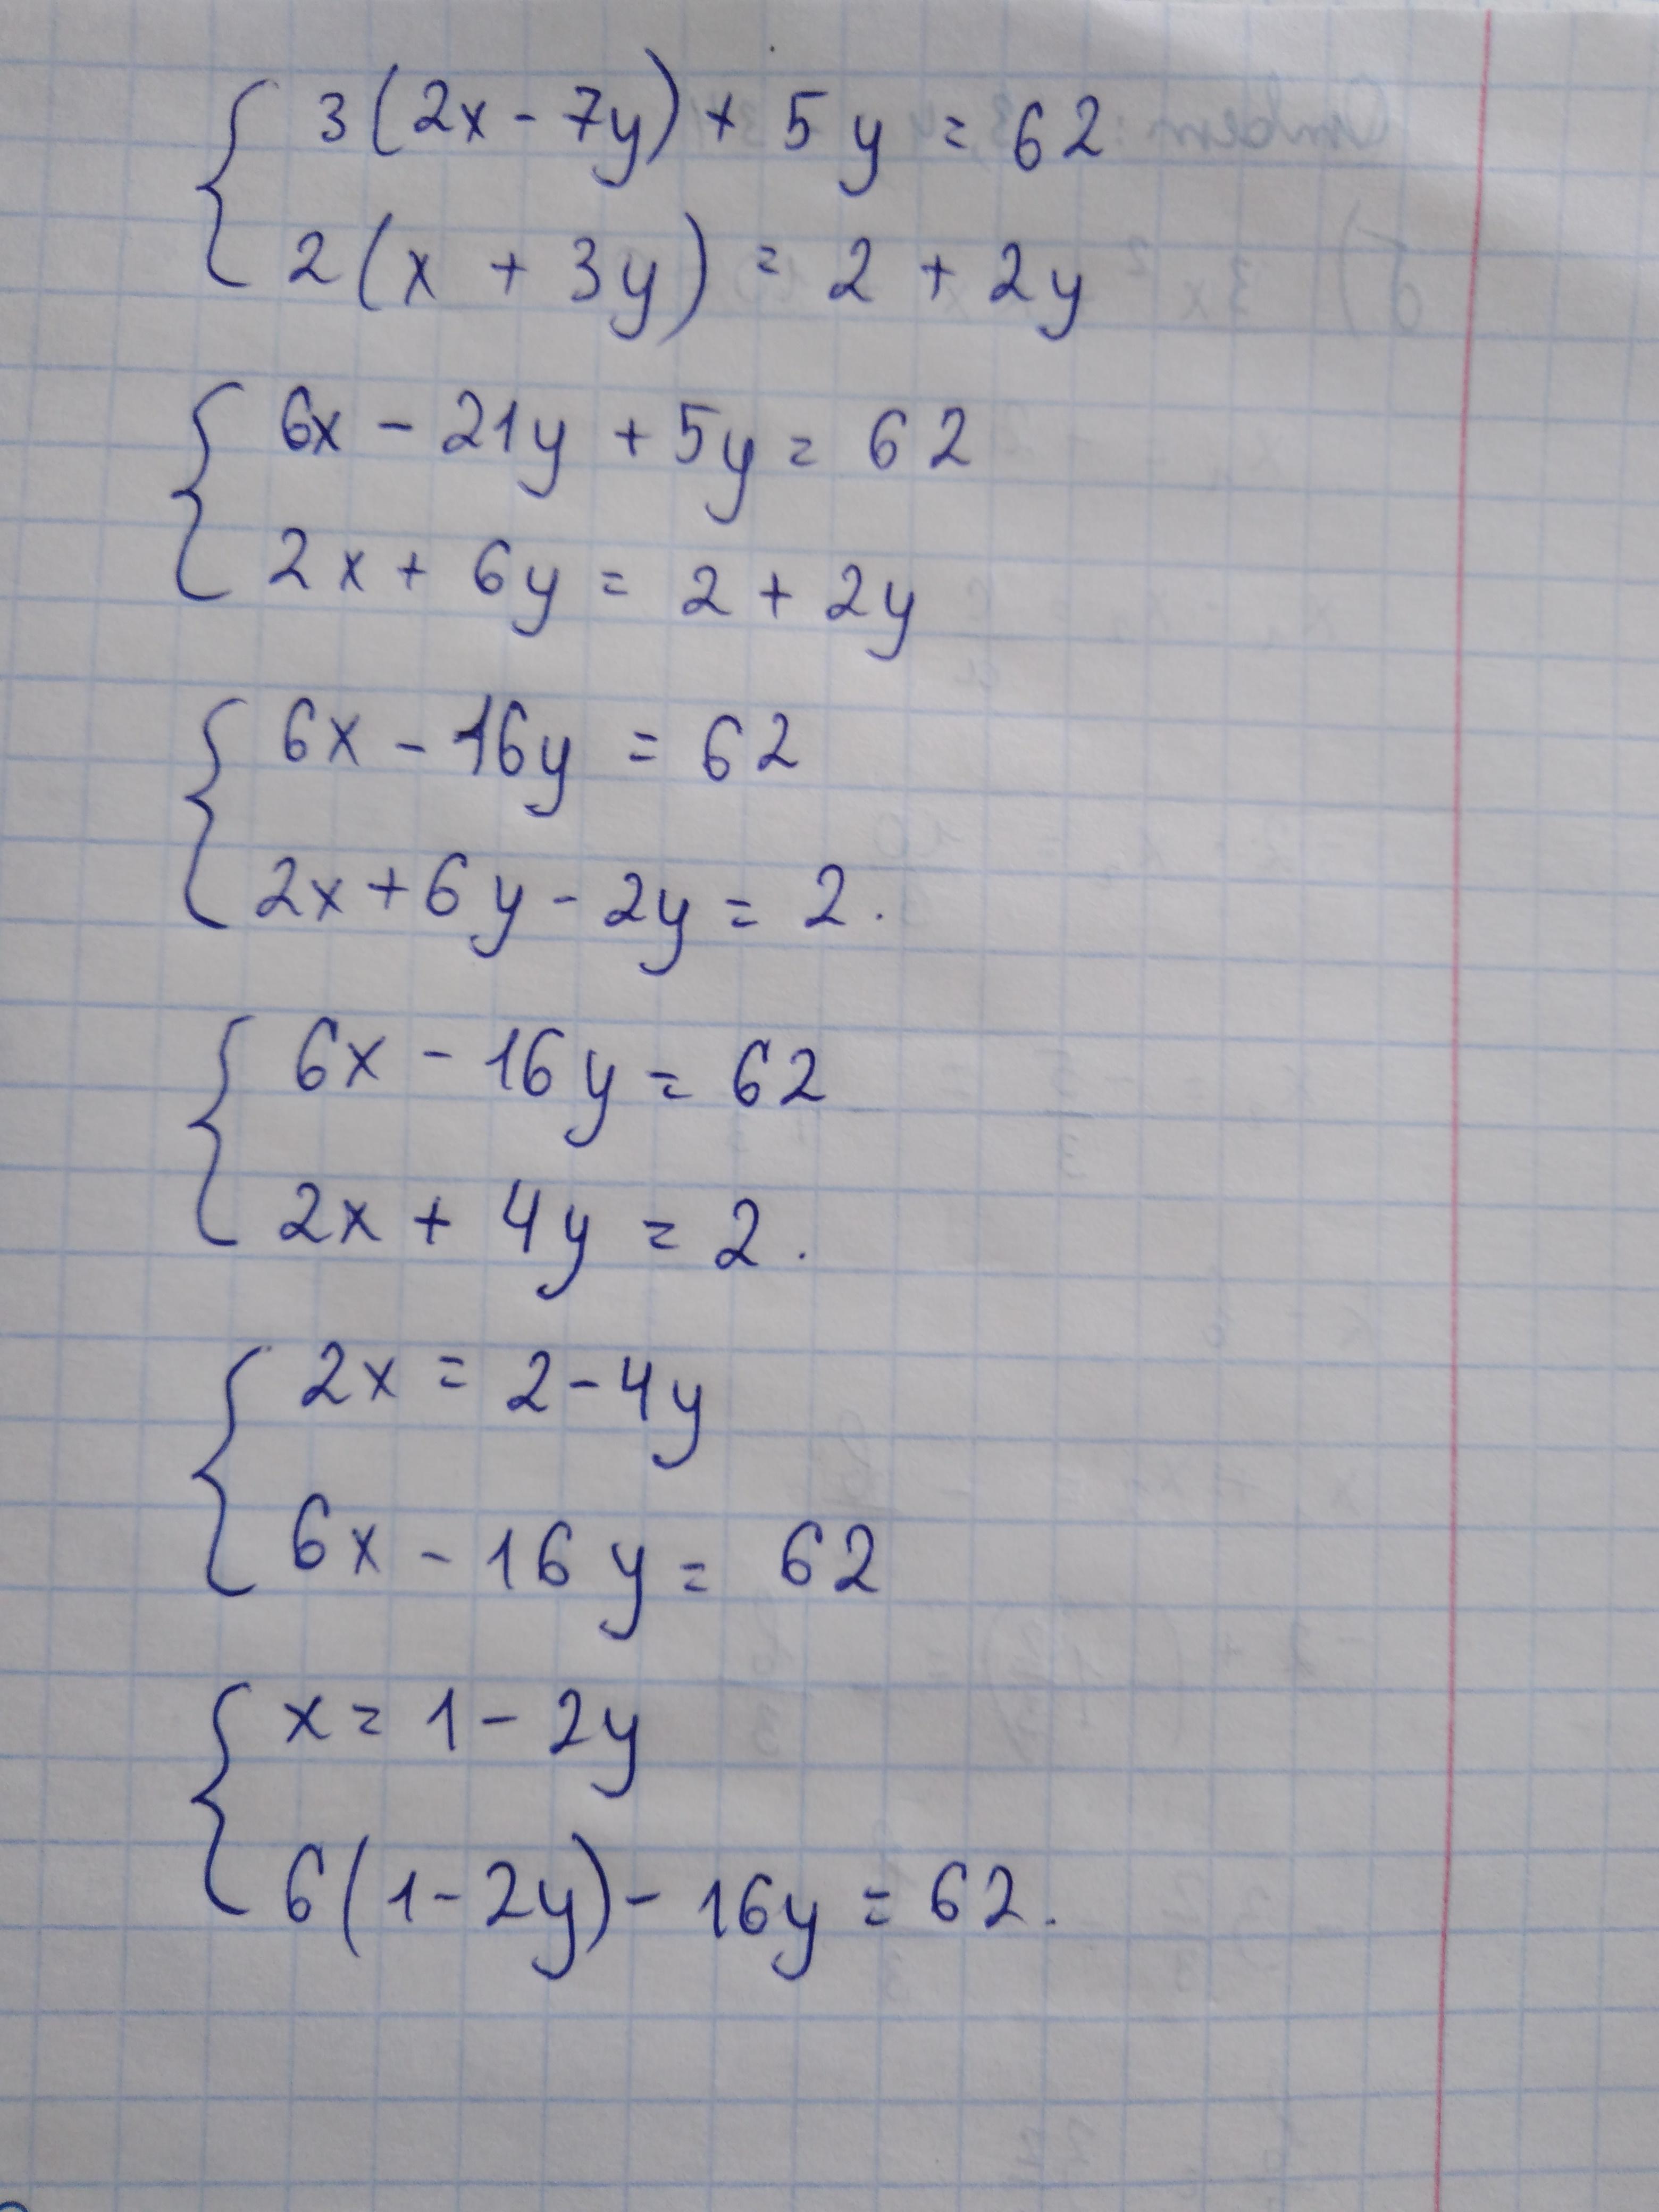 3(2x - 7y) + 5y = 62
2(x + 3y) = 2 + 2y
6x - 21y + 5y = 62
2x + 6y = 2 + 2y
6x - 16y = 62
2x + 6y - 2y = 2.
6x - 16y = 62
2x + 4y = 2.
2x = 2 - 4y
6x - 16y = 62
x = 1 - 2y
6(1 - 2y) - 16y = 62.